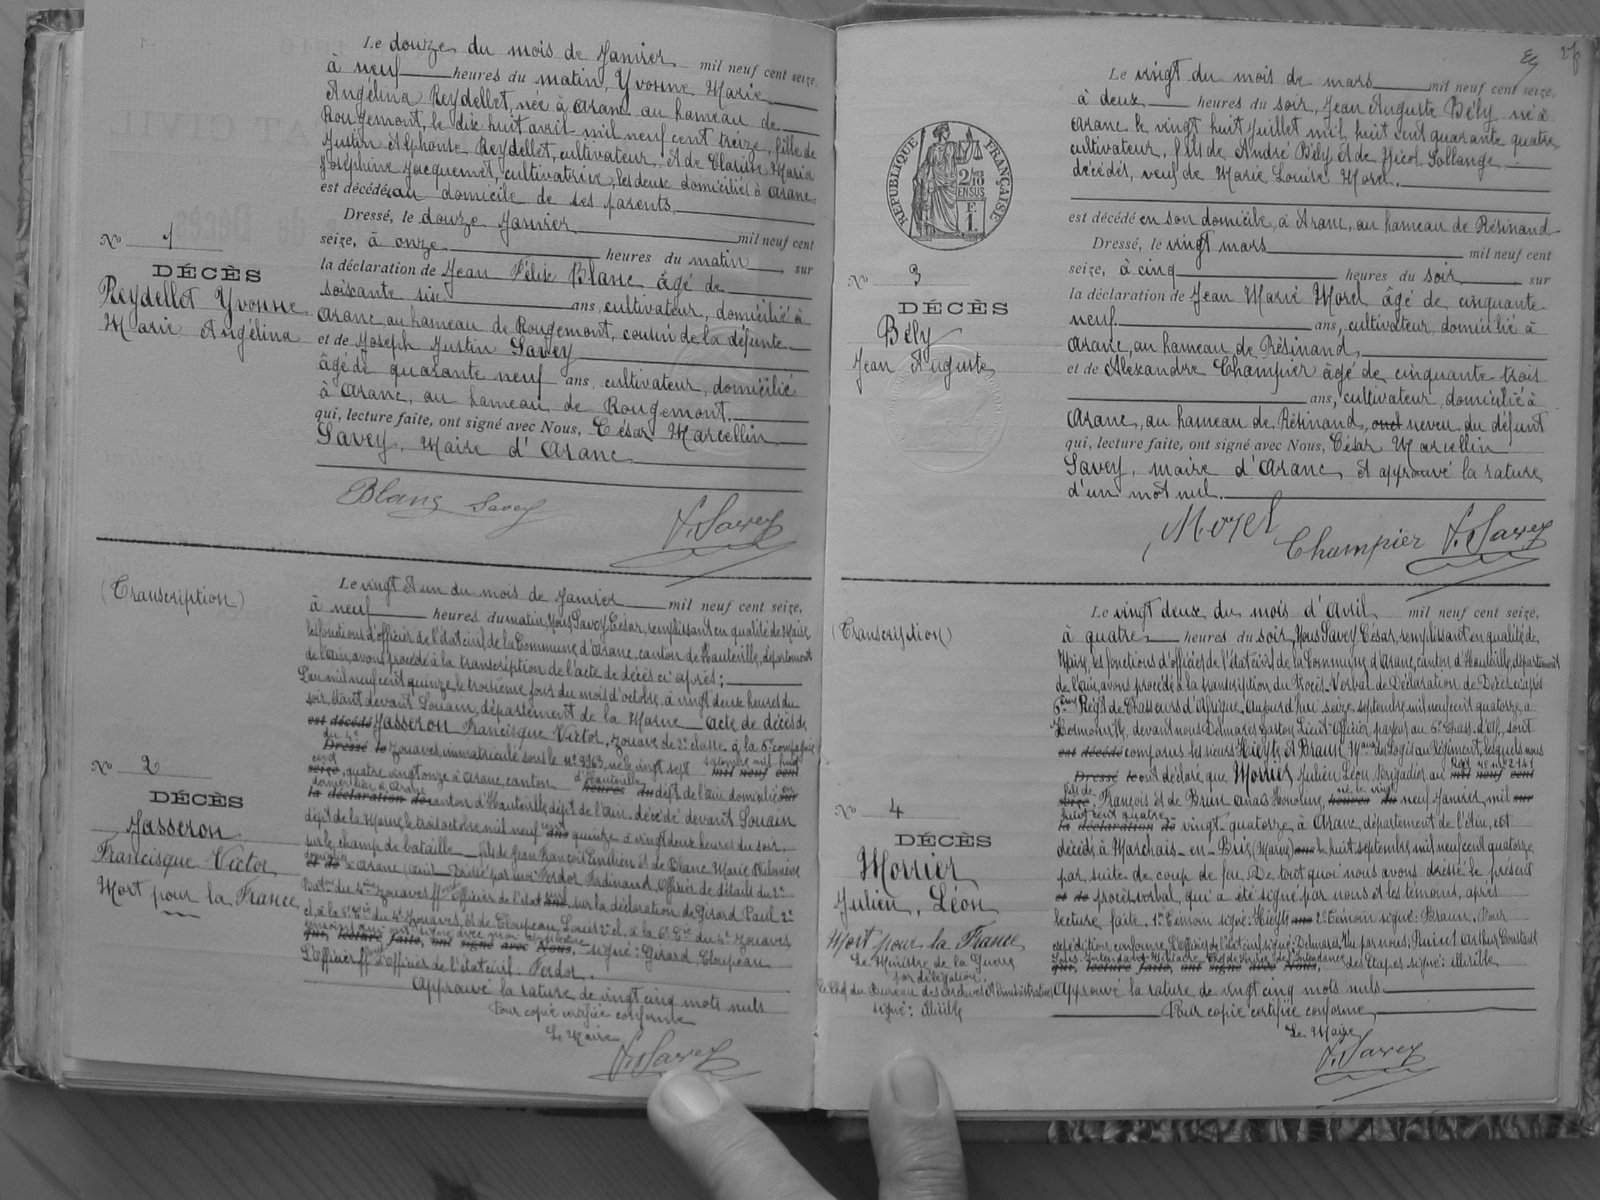 Le douze du mois de Janvier mil neuf cent seize,
à neuf heures du matin, Yvonne Marie
Angélina Reydellet, née à Aranc au hameau de
Rougemont, le dix huit avril mil neuf cent treize, fille de
Justin Alphonse Reydellet, cultivateur, et de Clarisse Maria
Joséphine Jacquemet, cultivatrice, les deux domiciliés à Aranc
est décédée au domicile de ses parents.
Dressé, le douze Janvier mil neuf cent
seize, à onze heures du matin, sur
la déclaration de Jean Félix Blanc âgé de
soixante six ans, cultivateur, domicilié à
Aranc au hameau de Rougemont, cousin de la défunte
et de Joseph Justin Savey
âgé de quarante neuf ans, cultivateur, domicilié
à Aranc, au hameau de Rougemont.
qui, lecture faite, ont signé avec Nous, César Marcellin
Savey, Maire d'Aranc.
Blanc Savey C. Savey
No 1
DÉCÈS
Reydellet Yvonne
Marie Angélina
(Transcription)
No 2
DÉCÈS
Jasseron
Francisque Victor
Mort pour la France
Le vingt et un du mois de Janvier mil neuf cent seize,
à neuf heures du matin, Nous Savey César, remplissant en qualité de Maire
les fonctions d'officier de l'état civil de la Commune d'Aranc, canton de Hauteville, département
de l'Ain, avons procédé à la transcription de l'acte de décès ci après:
L'an mil neuf cent quinze, le troisième jour du mois d'octobre, à vingt deux heures du
soir, étant devant Souain, département de la Marne acte de décès de
est décédé Jasseron Francisque Victor, zouave de 2e classe à la 6e compagnie
du 4e
Dressé le zouaves immatriculé sous le No 9363, né le vingt sept septembre mil huit mil neuf cent
cent
seize, quatre vingt onze à Aranc, canton d'Hauteville heures du dépt de l'Ain domicilié sur
domicilié à Aranc
la déclaration de canton d'Hauteville dépt de l'Ain, décédé devant Souain
dépt de la Marne, le trois octobre mil neuf cent ans quinze à vingt deux heures du soir,
sur le champ de bataille fils de Jean François Emilien et de Blanc Marie Philomène
et de Aranc (Ain). Dressé par moi Ferdor Ferdinand, officier de détails du 2e
Baton du 4eme Zouaves ff d'officier de l'état civil, sur la déclaration de Girard Paul 2e
cl. à la 6e Cie du 4e Zouaves, et de Cloupeau Louis 2e cl. à la 6e Cie du 4e Zouaves
témoins qui ont signé avec moi
qui, lecture faite, ont signé avec Nous, signé: Girard, Cloupeau
L'officier ff d'officier de l'état civil: Ferdor.
Approuvé la rature de vingt cinq mots nuls
Pour copie certifiée conforme
Le Maire
C. Savey
27
RÉPUBLIQUE FRANÇAISE
2/10 EN SUS
F. 1.
No 3
DÉCÈS
Bély
Jean Auguste
Le vingt du mois de mars mil neuf cent seize,
à deux heures du soir, Jean Auguste Bély né à
Aranc le vingt huit Juillet mil huit cent quarante quatre,
cultivateur, fils de André Bély et de Nicol Sollange
décédés, veuf de Marie Louise Morel.
est décédé en son domicile, à Aranc, au hameau de Résinand
Dressé, le vingt mars mil neuf cent
seize, à cinq heures du soir, sur
la déclaration de Jean Marie Morel âgé de cinquante
neuf ans, cultivateur domicilié à
Aranc, au hameau de Résinand,
et de Alexandre Champier âgé de cinquante trois
ans, cultivateur, domicilié à
Aranc, au hameau de Résinand, neveu du défunt
qui, lecture faite, ont signé avec Nous, César Marcellin
Savey, maire d'Aranc, et approuvé la rature
d'un mot nul.
Morel Champier C. Savey
(Transcription)
No 4
DÉCÈS
Morrier
Julien, Léon
Mort pour la France
Le Ministre de la Guerre
par délégation
le Chef du Bureau des archives Administratives
signé: illisible
Le vingt deux du mois d'Avril mil neuf cent seize,
à quatre heures du soir, Nous Savey César, remplissant en qualité de
Maire, les fonctions d'officier de l'état civil de la Commune d'Aranc, canton d'Hauteville, département
de l'Ain, avons procédé à la transcription du Procès-Verbal de Déclaration de Décès ci après
6ème Régt de Chasseurs d'Afrique. Aujourd'hui seize septembre mil neuf cent quatorze, à
devant nous Delmares Gaston, Lieut. Officier payeur au 6e Chass. d'Af., sont
est décédé comparus les sieurs et Braun, Maux des Logis au Régiment, lesquels nous
Dressé le ont déclaré que Morrier Julien Léon, Brigadier au mil neuf cent
fils de
seize, François et de Brun Anaïs Honorine, né le vingt heures du neuf Janvier mil sur
huit cent quatre
la déclaration de vingt quatorze à Aranc, département de l'Ain, est
décédé à Marchais-en-Brie (Marne) ans le huit septembre mil neuf cent quatorze
par suite de coup de feu. De tout quoi nous avons dressé le présent
et de procès verbal, qui a été signé par nous et les témoins, après
lecture faite. 1er Témoin signé: ans 2e Témoin signé: Braun. Pour
expédition conforme, L'officier de l'état civil, signé: Delmares. Vu par nous,
qui, lecture faite, ont signé avec Nous, des Etapes signé: illisible
Approuvé la rature de vingt cinq mots nuls
Pour copie certifiée conforme,
Le Maire
C. Savey